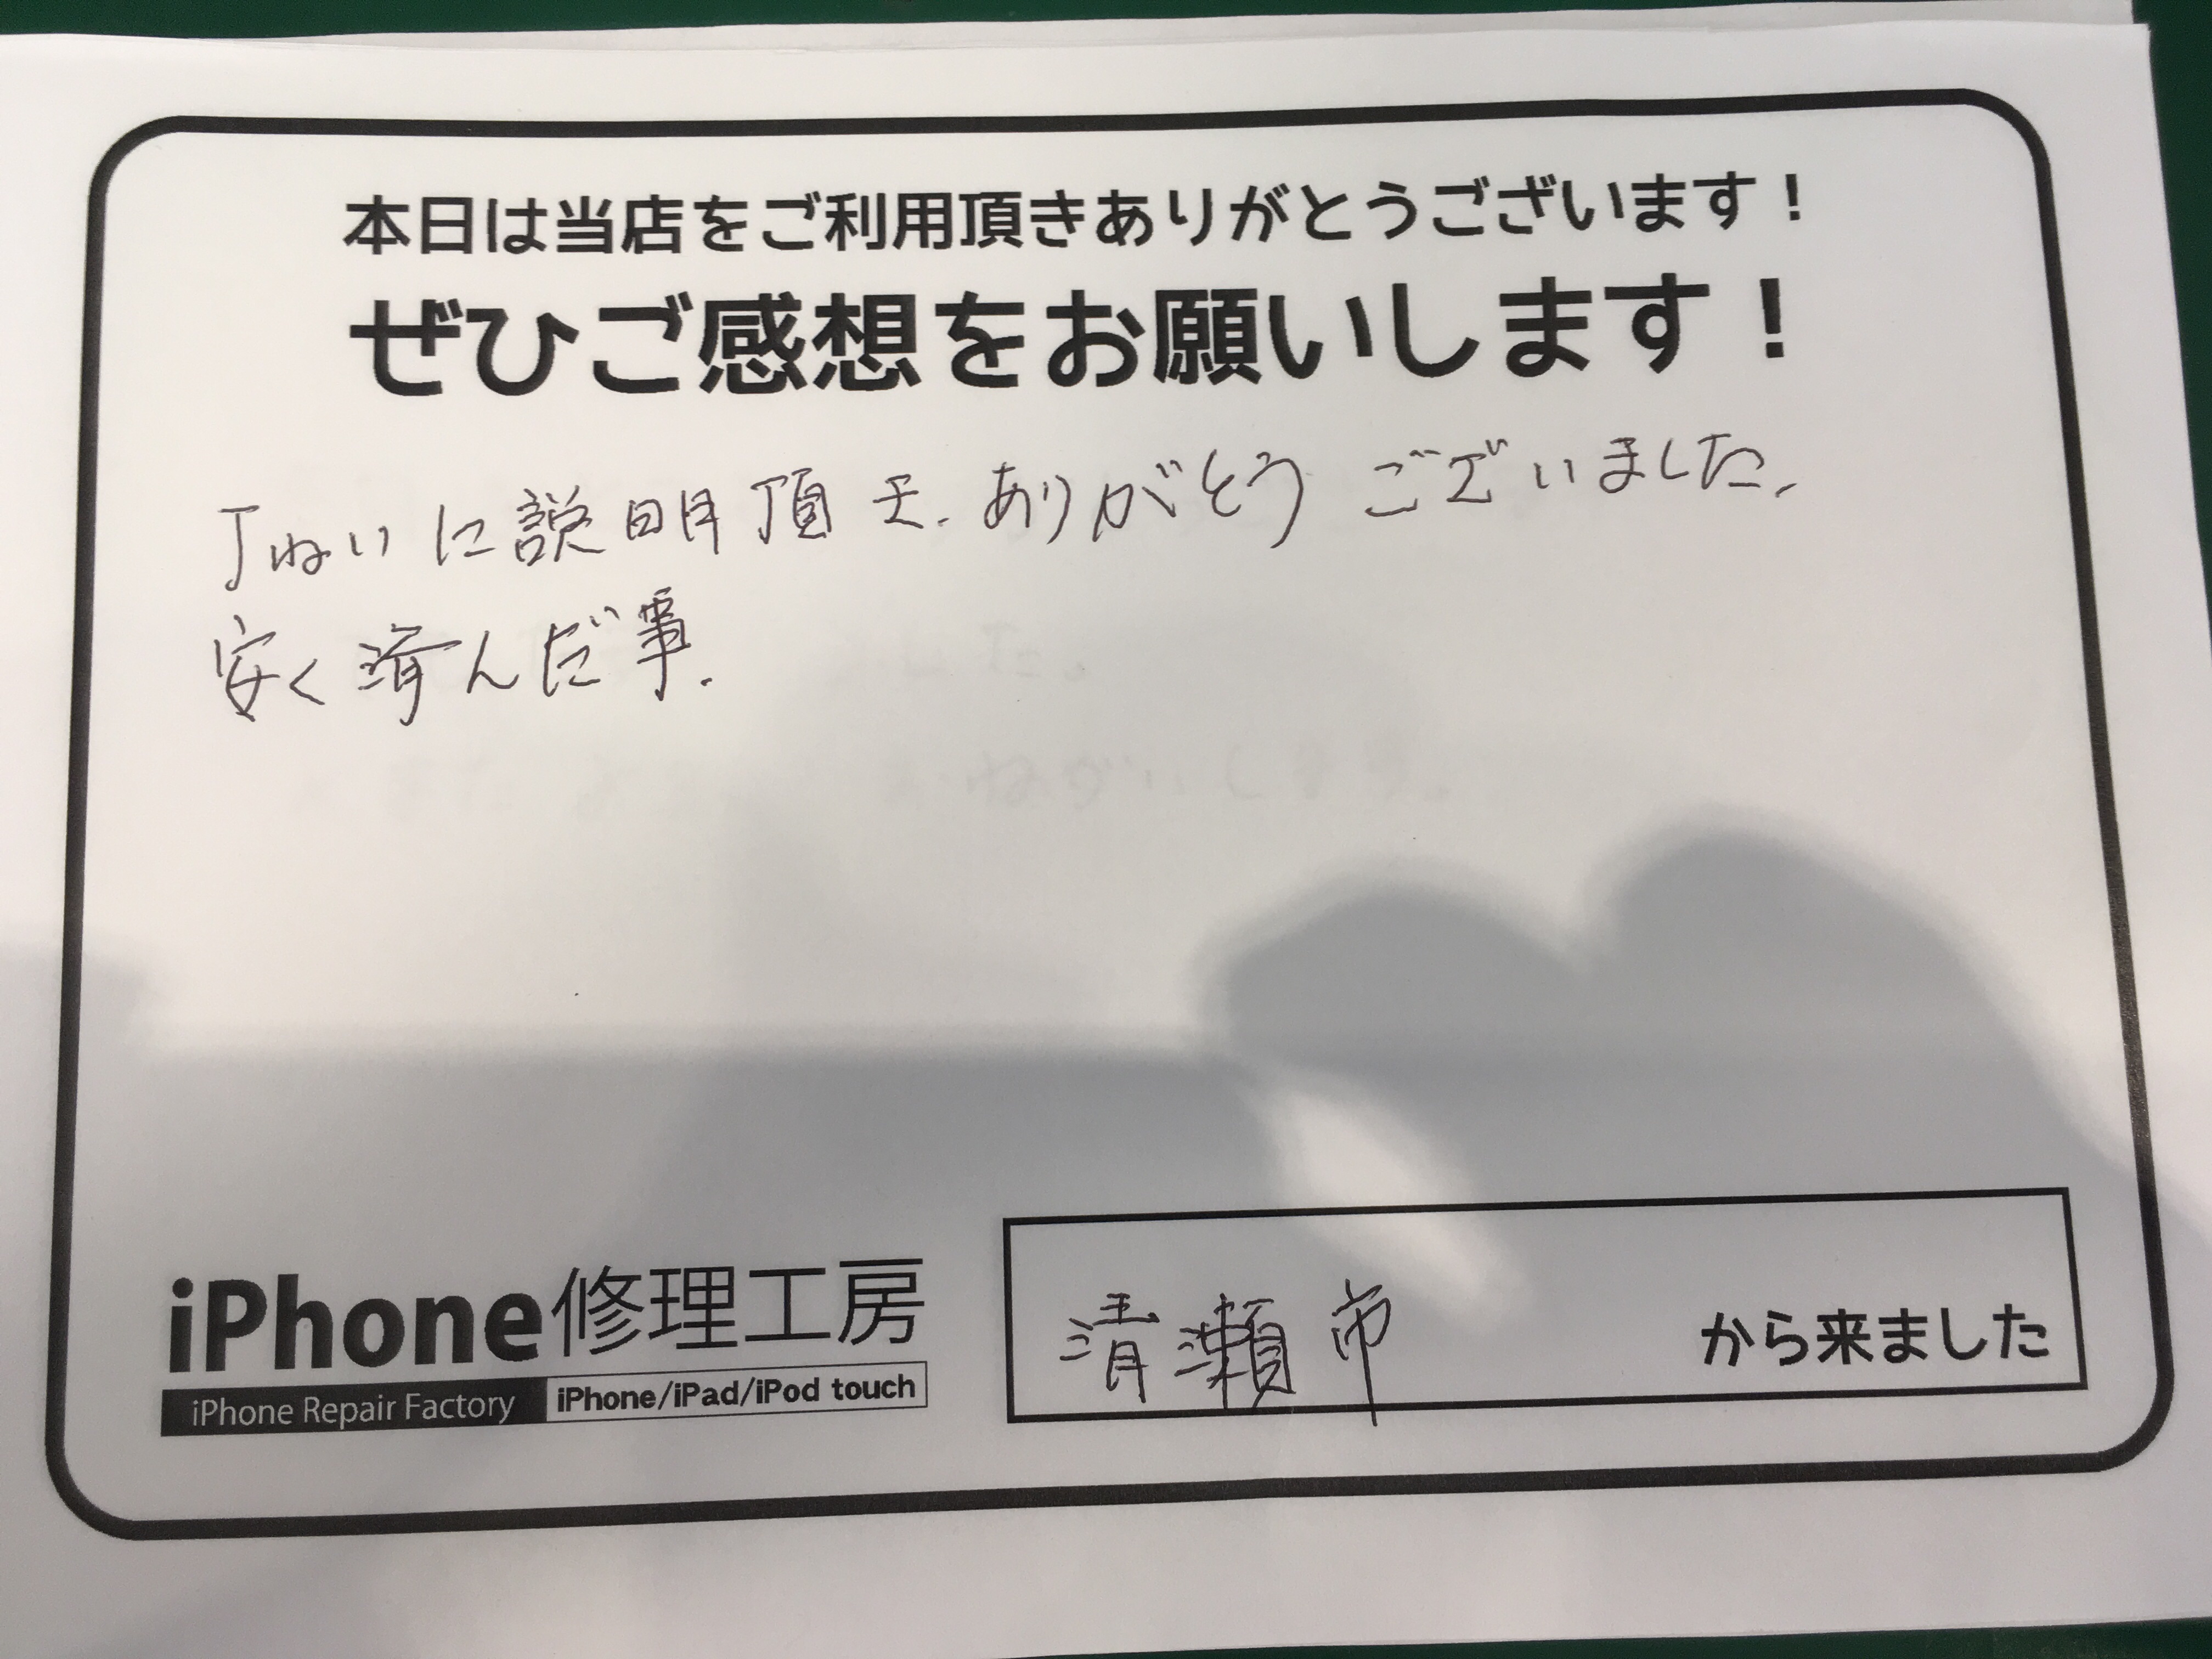 本日は当店をご利用頂きありがとうございます！
ぜひご感想をお願いします！
丁ねいに説明頂き、ありがとうございました。
安く済んだ事。
iPhone修理工房
iPhone Repair Factory iPhone/iPad/iPod touch
清瀬市 から来ました